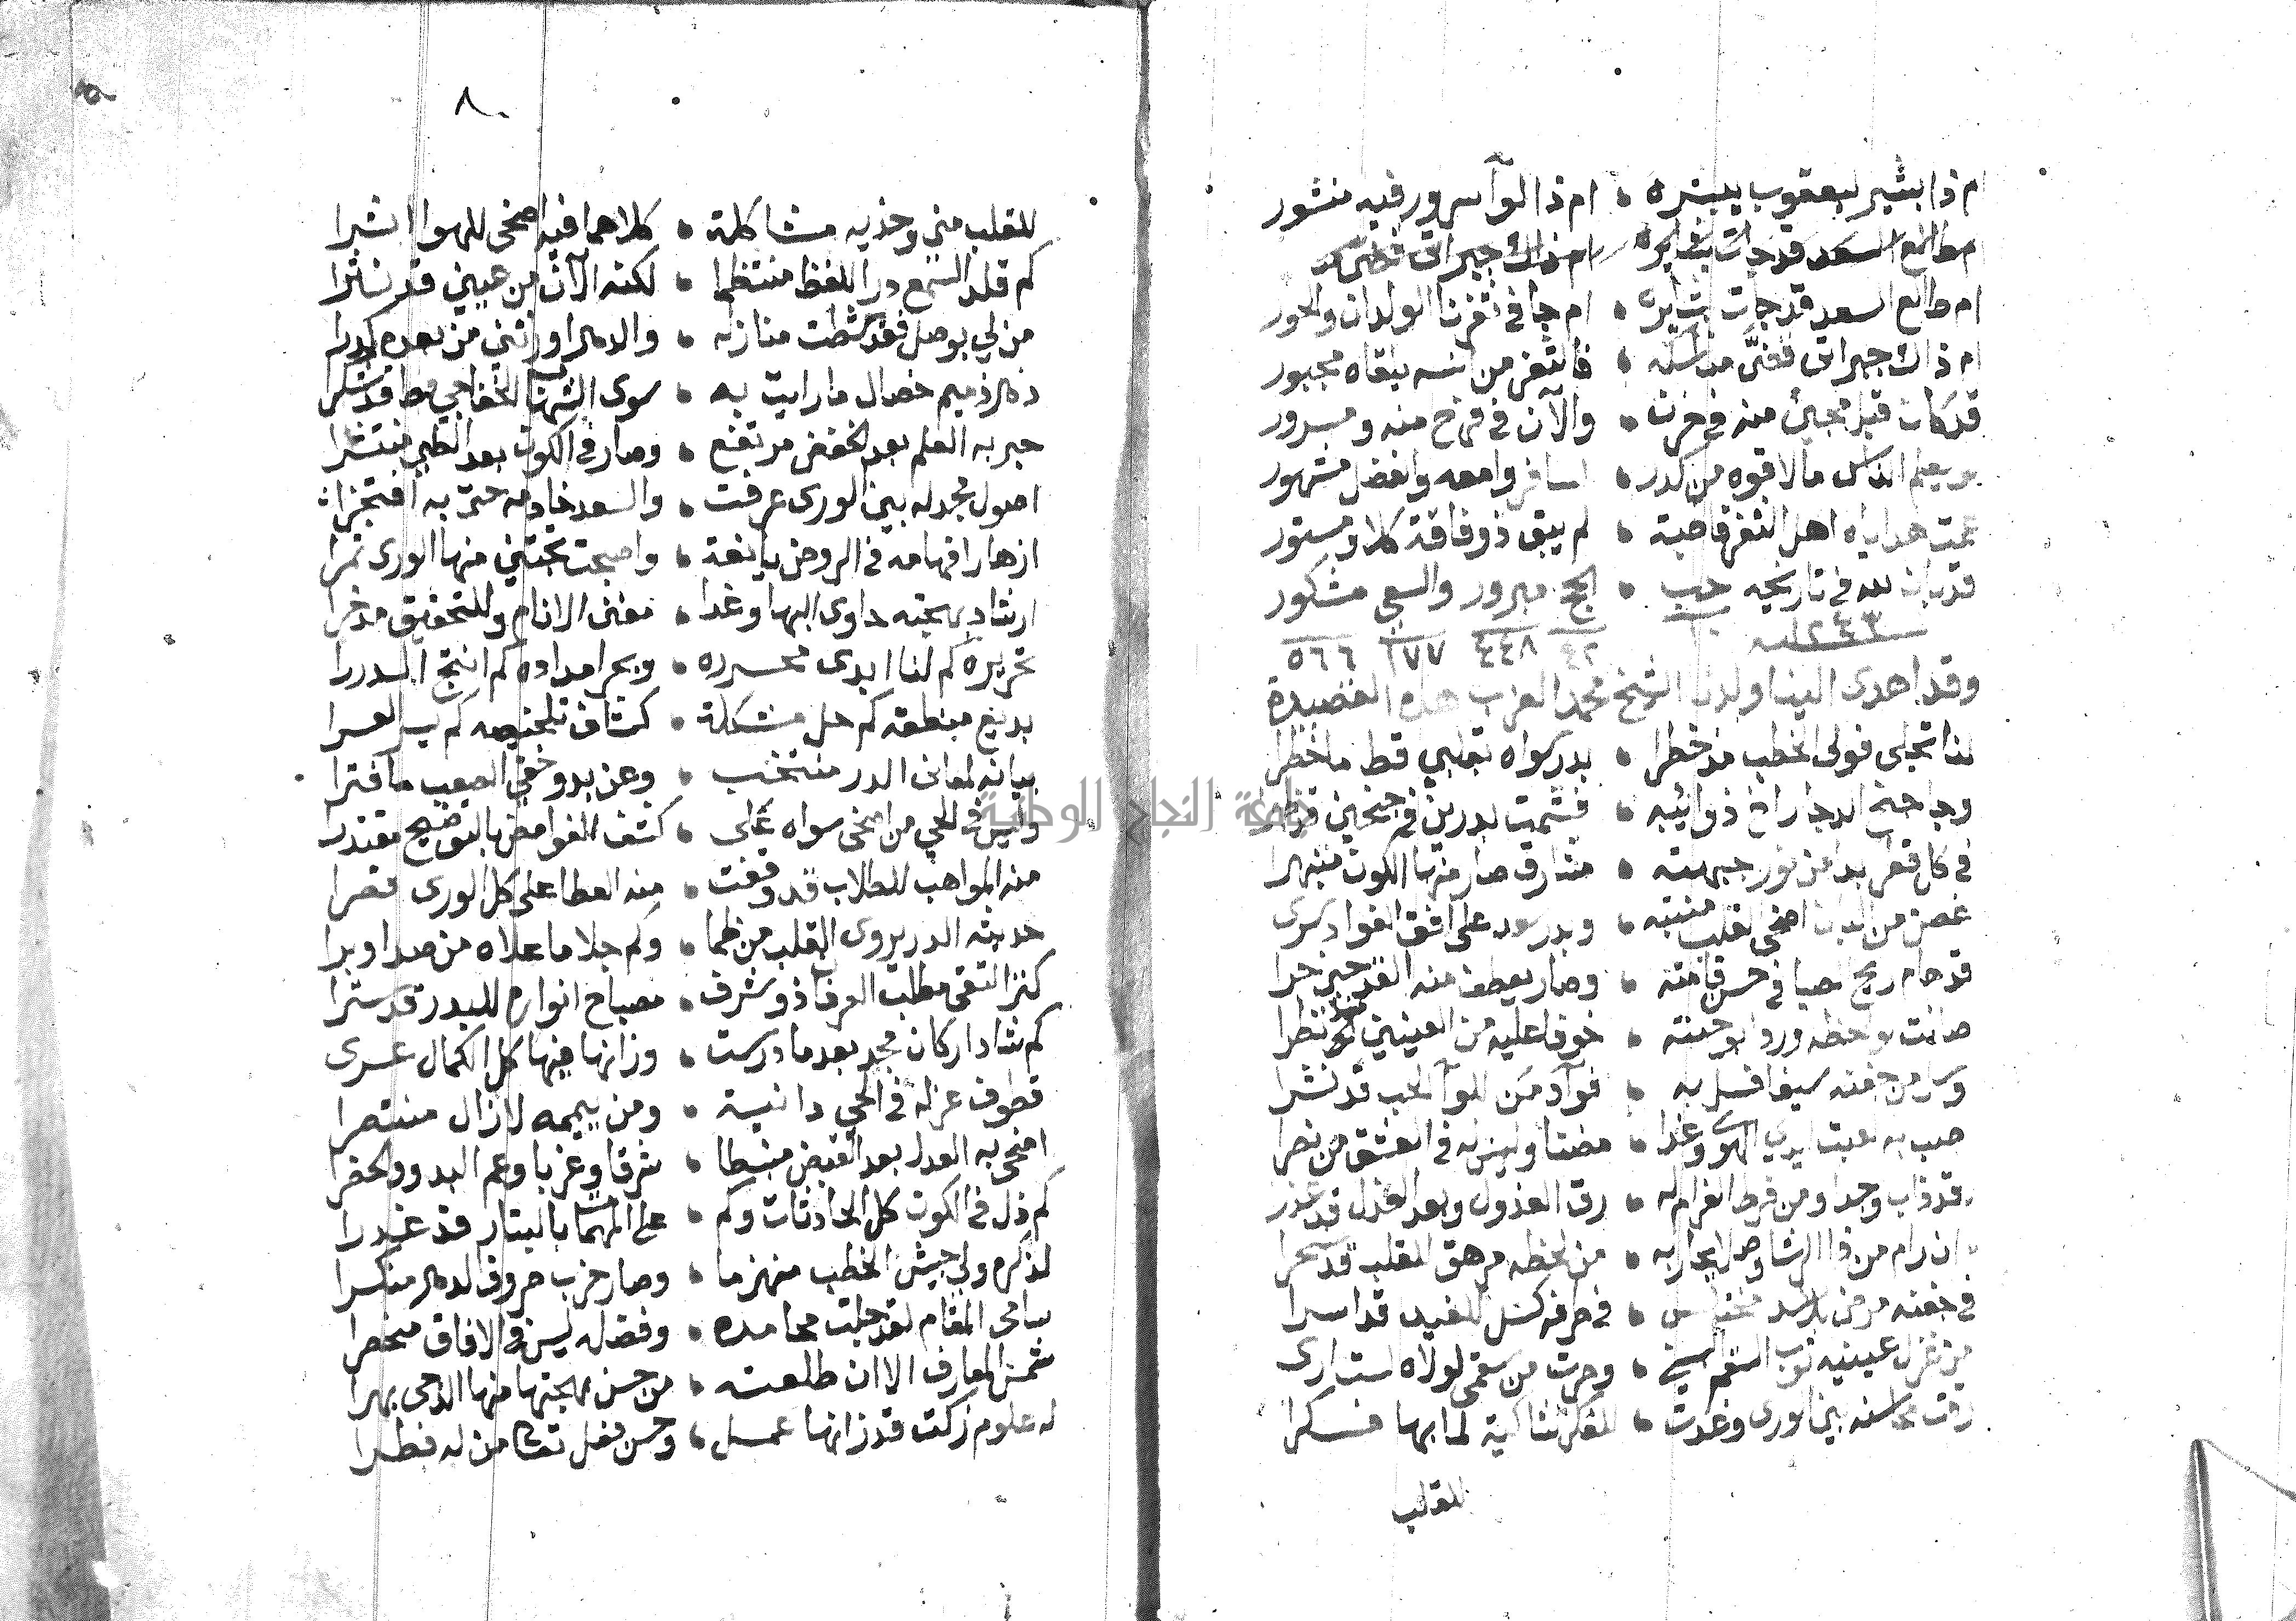 ام ذا بشير ليعقوب يبشره • ام ذا لوآ سرور فيه منشور
ام طالع السعد قد جات بشايره ام ذاك جبرا
ام طالع السعد قد جات بشايره • ام جا في ثغرنا الولدان والحور
ام ذاك جبرا تقضى مناسكه • فالثغر من انسه بلقاه مجبور
قد كان قبل مجيئ منه في حزن • والآن في فرح منه ومسرور
يعلم الناس ما لاقوه من كدر • اسافر وامعه والفضل مشهور
عمت هداياه اهل الثغر قاطبة • لم يبق ذو فاقة كلا ومستور
قد بان لله في تاريخه حب • الحج مبرور والسعي مشكور
١٢٤٣ سنه ١٠ ٤٢ ٤٤٨ ١٧٧ ٥٦٦
وقد اهدى الينا ولدنا الشيخ محمد العزب هذه القصيدة
لنا تجلى فولى الخطب مذ خطرا • بدر سواه بقلبي قط ما خطرا
وجا جنح الدجا راخ ذوائبه • فشمت بدرين في جنحين قد
في كل قطر بدا من نور جبهته • مشارق صار منها الكون منبهرا
غصن من البان اضحى القلب منبته • وبدر سعد على افق الفواد سرى
قد هام ريح الصبا في حسن قامته • وصار يعطف منه القد حين جرا
صانت لواحظه وردا بوجنته • خوفا عليه من العينين ان نظرا
وسل من جفنه سيفا فسل به • فوآد من للوآ الحب قد نشرا
صب به لعبت ايدي الهوى وغدا • مضنا وليس له في العشق من نصرا
قد ذاب وجدا ومن فرط الغرام له • رق العذول وبعد العذل قد عذر
ان رام من ذا الرشا وصلا يحاربه • من لحظه مرهق للقلب قد سحرا
في جفنه مرض للاسد مختلس • في طرفه كسل للغيد قد اسرا
من غزل عينيه ثوب السقم البسني • وصرت من سقمي لولاه لست ارى
رقت محاسنه بين الورى وغدت • للفكر شاكية لما بها فسكرا
للقلب
٨٠
للقلب مني وخديه مشاكلة • كلاهما فيه اضحى للهوا الشررا
كم قلد السمع درا للفظ منتظما • لكنه الآن من عيني قد نثرا
من لي بوصل فقد شطت منازله • والدهر اورثني من بعده كدرا
دهر ذميم خصال ما رايت به • سوى الشهاب الخفاجي قط قد شكرا
حبر به العلم بعد الخفض مرتفع • وصار في الكون بعد الطي منتشرا
اصول مجد له بين الورى عرفت • والسعد خادمه حتى به افتخرا
ازهار افهامه في الروض يانعة • واصبحت تجتني منها الورى ثمرا
ارشاد بهجته حاوى البها وغدا • مغنى الانام وللتحقيق مدخرا
تحريره كم لنا ابدى محسرده • وبحر امداده كم انتج الدررا
بديع منطقه كم حل مشكلة • كشاف تلخيصه كم يسر العسرا
بيانه لمعانى الدر منتخب • وعن بدو خفي الصعب ما فترا
وليس في الحي من اضحى سواه على • كشف الغوامض بالتوضيح مقتدرا
منه المواهب للطلاب قد وقفت • منه العطا على كل الورى قصرا
حديثه الدر يروى القلب من ظما • وكم جلا ما علاه من صدا وبرا
كنز التقى مطلب العرفان ذو شرف • مصباح انواره للبدر قد سترا
كم شاد اركان مجد بعد ما درست • وزانها فيها كل الكمال عسرى
قطوف عز له في الحي دانية • ومن ييممه لا زال منتصرا
اضحى به العدل بعد القبض منبسطا • شرقا وغربا وعم البدو والحضرا
كم ذل في الكون كل الحادثات وكم • على المهمات بالبتار قد غدرا
لذكره ولى جيش الخطب منهزما • وصار حزب صروف الدهر منكسرا
سامى المقام لقد جلت محامده • وفضله ليس في الافاق منحصرا
شمس المعارف الا ان طلعته • من حسن بهجتها منها الدجى بهرا
له علوم زكت قد زانها عمل • وحسن فعل تعالى من له فطرا